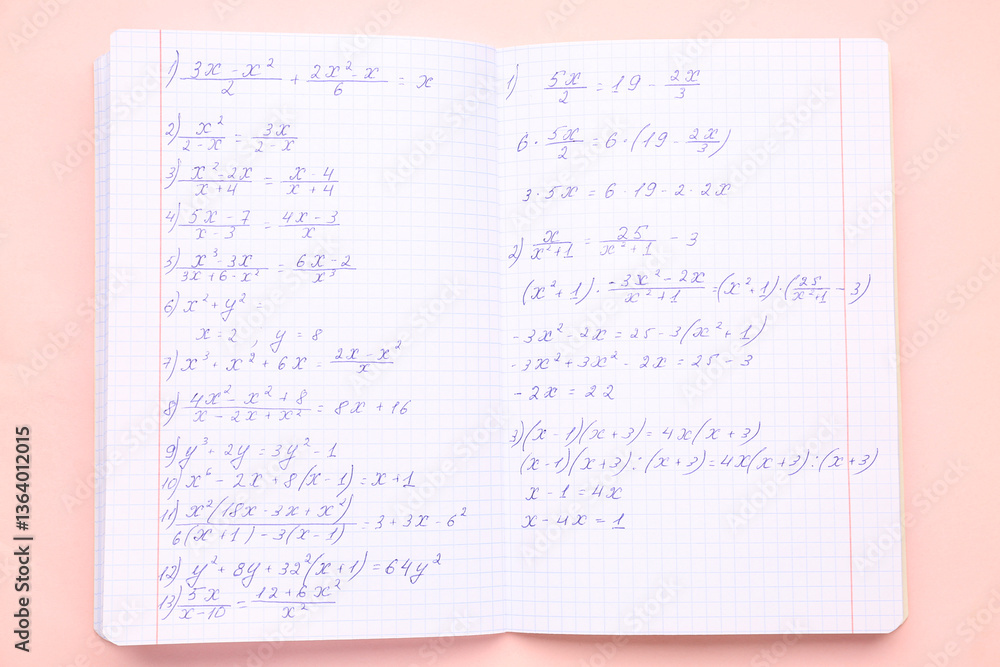 1) (3x - x²)/2 + (2x² - x)/6 = x
2) x²/(2 - x) = 3x/(2 - x)
3) (x² - 2x)/(x + 4) = (x - 4)/(x + 4)
4) (5x - 7)/(x - 3) = (4x - 3)/x
5) (x³ - 3x)/(3x + 6 - x²) = (6x - 2)/x³
6) x² + y² =
x = 2, y = 8
7) x³ + x² + 6x = (2x - x²)/x
8) (4x² - x² + 8)/(x - 2x + x²) = 8x + 16
9) y³ + 2y = 3y² - 1
10) x⁶ - 2x + 8(x - 1) = x + 1
11) x²(18x - 3x + x²)/(6(x + 1) - 3(x - 1)) = 3 + 3x - 6²
12) y² + 8y + 32²(x + 1) = 64y²
13) 5x/(x - 10) = (12 + 6x²)/x²
1) 5x/2 = 19 - 2x/3
6 · 5x/2 = 6 · (19 - 2x/3)
3 · 5x = 6 · 19 - 2 · 2x
2) x/(x² + 1) = 25/(x² + 1) - 3
(x² + 1) · (-3x² - 2x)/(x² + 1) = (x² + 1) · (25/(x² + 1) - 3)
-3x² - 2x = 25 - 3(x² + 1)
-3x² + 3x² - 2x = 25 - 3
-2x = 22
3) (x - 1)(x + 3) = 4x(x + 3)
(x - 1)(x + 3) : (x + 3) = 4x(x + 3) : (x + 3)
x - 1 = 4x
x - 4x = 1
Adobe Stock | #1364012015